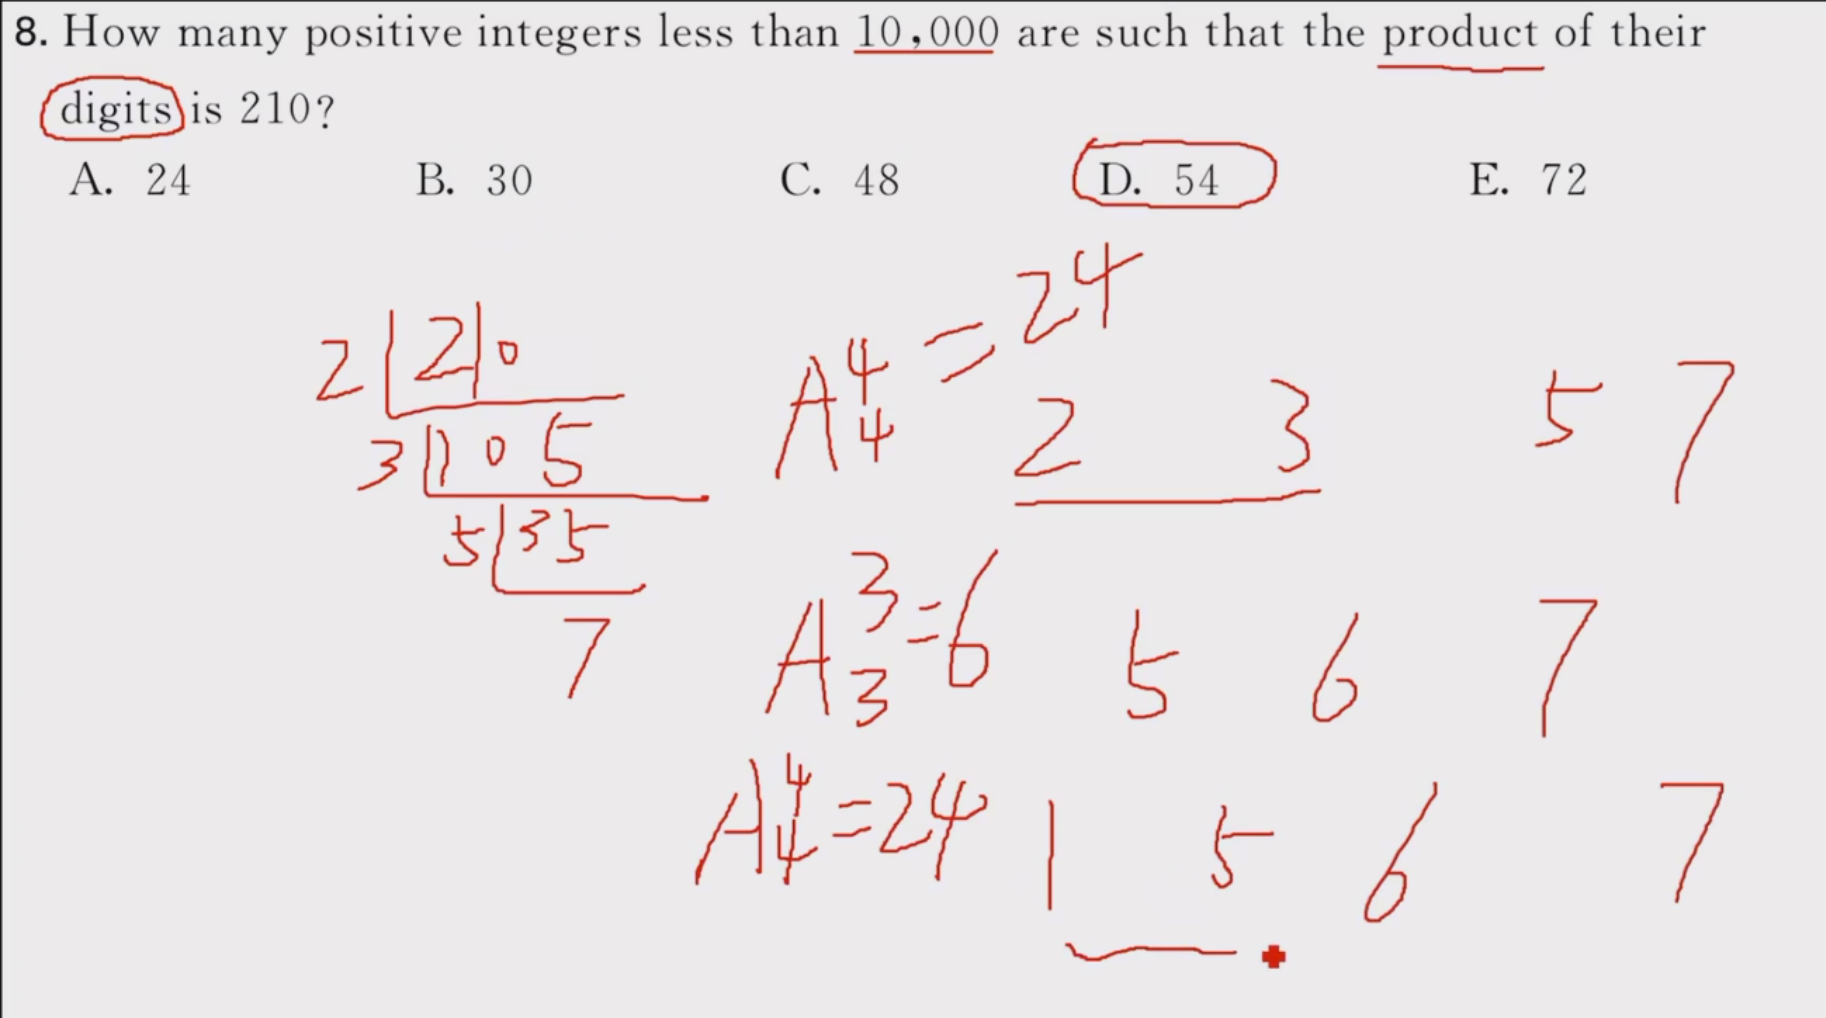 8. How many positive integers less than 10,000 are such that the product of their
digits is 210?
A. 24 B. 30 C. 48 D. 54 E. 72
2 210
3 105
5 35
7
A⁴₄ = 24
2 3 5 7
A³₃ = 6 5 6 7
A⁴₄ = 24 1 5 6 7